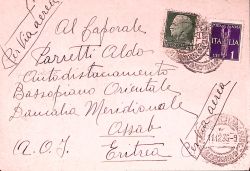 Per Via aerea
Al Caporale
Parretti Aldo
Autodistaccamento
Bassopiano Orientale
Dancalia Meridionale
Assab
(A.O.I.) Eritrea
Per via aerea
ITALIA
1